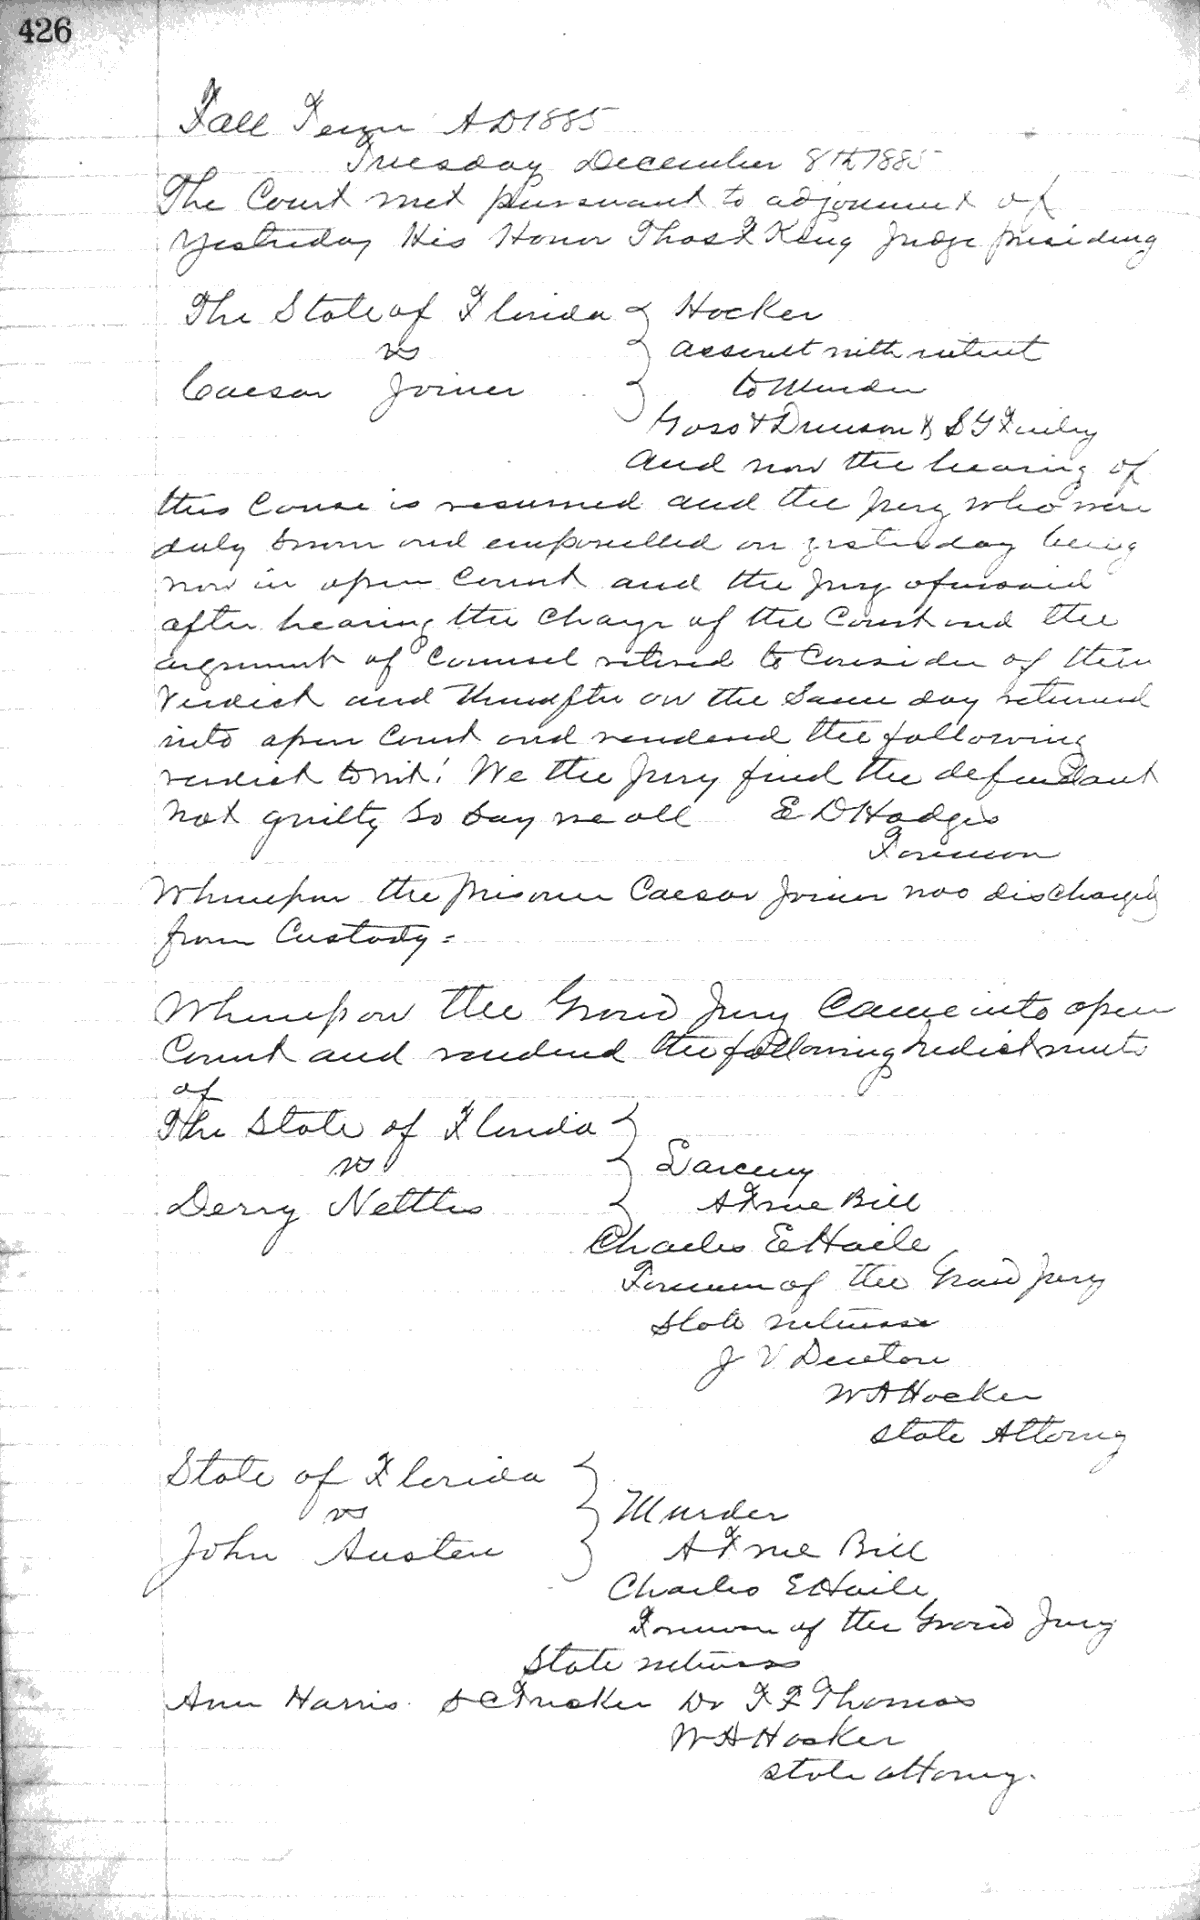 426
Fall Term A D 1885
Tuesday December 8th 1885
The Court met pursuant to adjournment of
yesterday His Honor Thos F King Judge presiding
The State of Florida
vs
Caesar Joiner
Hocker
assault with intent
to Murder
Goss & & S G
and now the hearing of
this Cause is resumed and the jury who were
duly sworn and empanelled on yesterday being
now in open Court and the jury aforesaid
after hearing the Charge of the Court and the
argument of Counsel retired to Consider of their
Verdict and thereafter on the same day returned
into open Court and rendered the following
verdict towit: We the Jury find the defendant
not guilty So say we all E D Hodges
Foreman
Whereupon the prisoner Caesar Joiner was discharged
from Custody =
Whereupon the Grand Jury Came into open
Court and rendered the following Indictments
of
The State of Florida
vs
Derry Nettles
Larceny
A True Bill
Charles E Haile
Foreman of the Grand Jury
State witness
J V Denton
W A Hocker
State Attorney
State of Florida
vs
John Austen
Murder
A True Bill
Charles E Haile
Foreman of the Grand Jury
State witness
Ann Harris S C Tucker Dr F F Thomas
W A Hocker
State attorney.